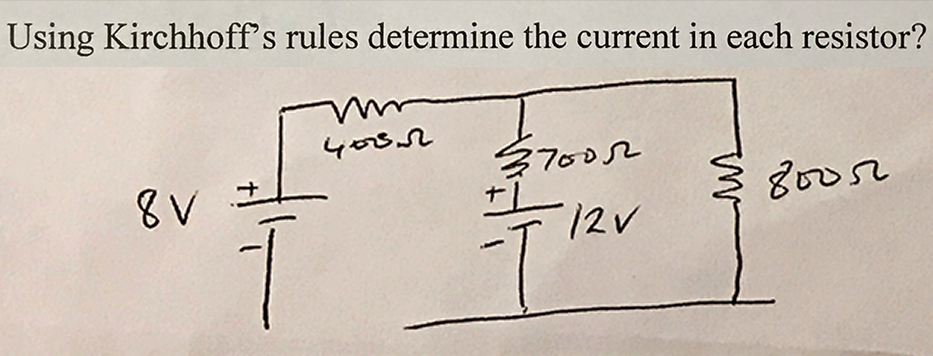 Using Kirchhoff's rules determine the current in each resistor?
400Ω
700Ω
8V
+
-
+
-
12V
800Ω